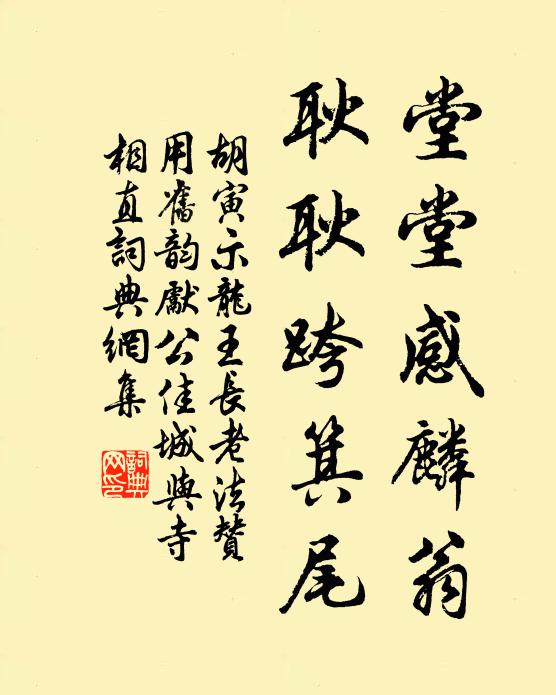 堂堂感麟翁
耿耿跨箕尾
胡寅示龍王長老法贊
用舊韵獻公佳城與寺
相直詞典網集
詞典网印